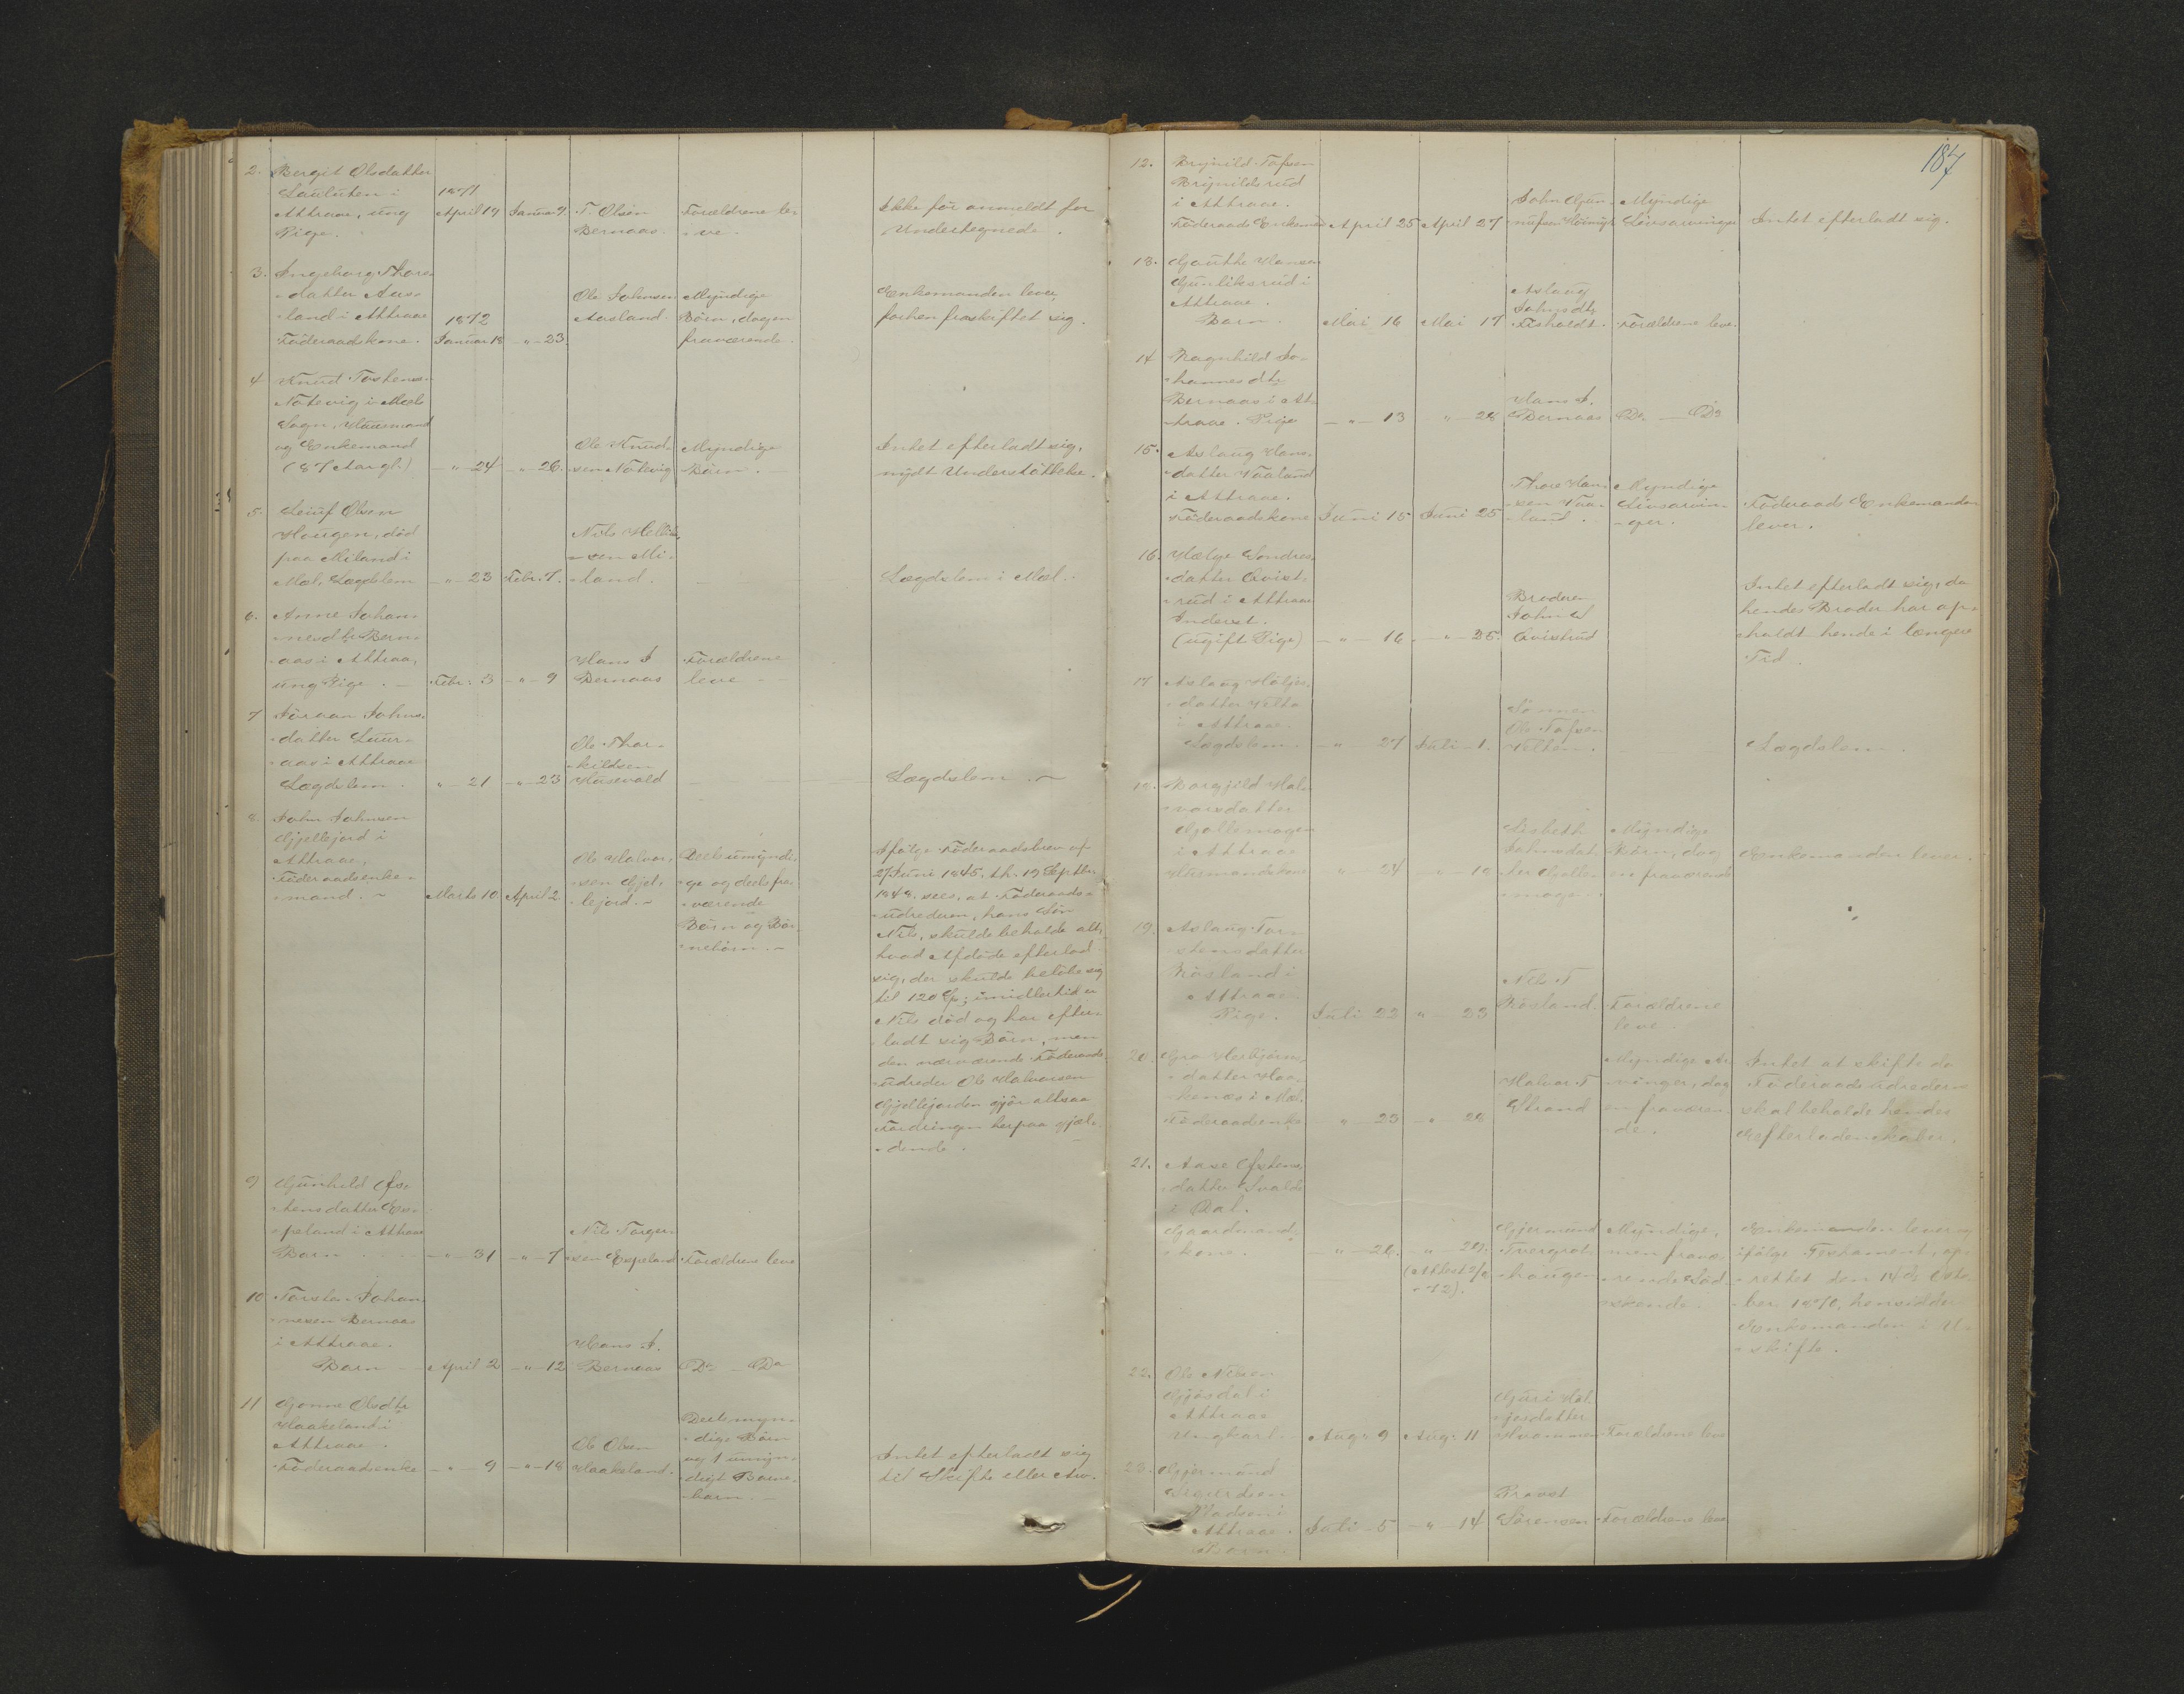 2. Bergit Olsdatter
Lauluten i
Attraae, ung
Pige.
1871
April 14 Januar 9. T. Olsen
Bernaas.
Forældrene le-
ve.
Ikke før anmeldt for
Undertegnede.
3. Ingeborg Thores-
datter Aas-
land i Attraae
Föderaadskone.
1872
Januar 18 -"- 23.
Ole Johnsen
Aasland.
Myndige
Börn, dog en
fraværende.
Enkemanden lever,
forhen fraskiftet sig.
4 Knud Tostens.
Nötevig i Mæls
Sogn, Huusmand
og Enkemand
(87 Aar gl.)
-"- 24 -"- 26.
Ole Knud-
sen Nötevig
Myndige
Börn.
Intet efterladt sig,
nydt Understöttelse.
5. Leiuf Olsen
Haugen, död
paa Miland i
Mæl. Lægdslem
-"- 23 Febr. 7.
Nils
sen Mi-
land.
Lægdslem i Mæl.
6. Anne Johan-
nesdtr Bern-
aas i Attraa,
ung Pige.
Febr: 3 -"- 9
Hans J
Bernaas
Forældrene
leve
7 Jöraan Johns-
datter Luur-
aas i Attraae
Lægdslem.
" 21 -"- 23
Ole Thor-
kildsen
Husevold
Lægdslem.
8. John Johnsen
Gjellejord i
Attraae,
Föderaadsenke-
mand.
Marts 10 April 2.
Ole Halvor-
sen Gjel-
lejord.
Deels umyndi-
ge og deels fra-
værende
Börn og Bör-
nebörn.
Ifölge Föderaadsbrev af
27 Juni 1845, th. 19 Septbr
1848, sees, at Föderaads-
udrederen, hans Sön
Nils, skulde beholde alt,
hvad Afdöde efterlod
sig, der skulde belöbe sig
til 120 Sp; imidlertid er
Nils död og har efter-
ladt sig Börn, men
den nærværende Föderaads-
udreder Ole Halvorsen
Gjellejorden gjör altsaa
Fordringen herpaa gjæl-
dende.
9 Gunhild Øs-
tensdatter Es-
peland i Attraae
Barn
-"- 31 -"- 7
Nils Torger-
sen Espeland
Forældrene leve
10 Torstein Johan-
nesen Bernaas
i Attraae.
Barn
April 2 -"- 12
Hans J.
Bernaas
Do Do
11 Gjonne Olsdtr
Haakeland i
Attraae.
Föderaadsenke
-"- 9 -"- 18
Ole Olsen
Haakeland.
Deels myn-
dige Börn
og 1 umyn-
digt Barne-
barn.
Intet efterladt sig
til Skifte eller Arv.
187
12. Brynild Tofsen
Brynildsrud
i Attraae.
Föderaads Enkemand
April 25 April 27
John Gjun-
nufsen
Myndige
Livsarvinger
Intet efterladt sig.
13. Gauthe Hansen
Gunliksrud i
Attraae.
Barn.
Mai 16 Mai 17
Aslaug
Johnsdtr
Fisholdt.
Forældrene leve.
14 Ragnhild Jo-
hannesdtr
Bernaas i At-
traae. Pige
-"- 13 " 28
Hans J.
Bernaas
Do Do
15. Aslaug Hans-
datter Vaaland
i Attraae.
Föderaadskone
Juni 15 Juni 25
Thore Han-
sen Vaa-
land.
Myndige
Livsarvin-
ger.
Föderaads Enkemanden
lever.
16. Hælge Sondres-
datter Qvist-
rud i Attraae
Inderst.
(ugift Pige)
-"- 16 -"- 25.
Broderen
John S
Qvistrud
Intet efterladt sig, da
hendes Broder har op-
holdt hende i længere
Tid.
17 Aslaug Höljes-
datter Velta
i Attraae.
Lægdslem.
-"- 27 Juli 1.
Sönnen
Ole Tofsen
Velten.
Lægdslem.
18. Borgjild Hal-
vorsdatter
Gjollemogen
i Attraae
Husmandskone
" 24 -"- 10
Lisbeth
Johnsdat-
ter Gjolle-
moge.
Myndige
Börn, dog
en fraværende
Enkemanden lever.
19. Aslaug Tor-
stensdatter
Rösland i
Attraae.
Pige.
Juli 22 " 23
Nils T
Rösland.
Forældrene
leve.
20. Gro Herbjörns-
datter Haa-
kenæs i Mæl.
Föderaadsenke
" 23 -"- 28
Halvor T
Strand
Myndige Ar-
vinger, dog
en fraværen-
de.
Intet at skifte da
Föderaadsudrederne
skal beholde hendes
Efterladenskaber.
21. Aase Øistens-
datter Svalde
i Dal.
Gaardmands-
kone.
" 20. -"- 29.
Gjermund
Tvergrot-
haugen
Myndige,
men fravæ-
rende Söd-
skende.
Enkemanden lever og
ifölge Testament, op-
rettet den 14de Octo-
ber 1870, hensidder
Enkemanden i U-
skifte.
22. Ole Nilsen
Gjösdal i
Attraae
Ungkarl.
Aug: 9 Aug: 11
Guri Hal-
jesdatter
Hvammen
Forældrene leve
23. Gjermund
Sigurdsen
Madsen i
Attraae.
Barn.
Juli 5 -"- 14
Provst
Sörensen
Forældrene leve